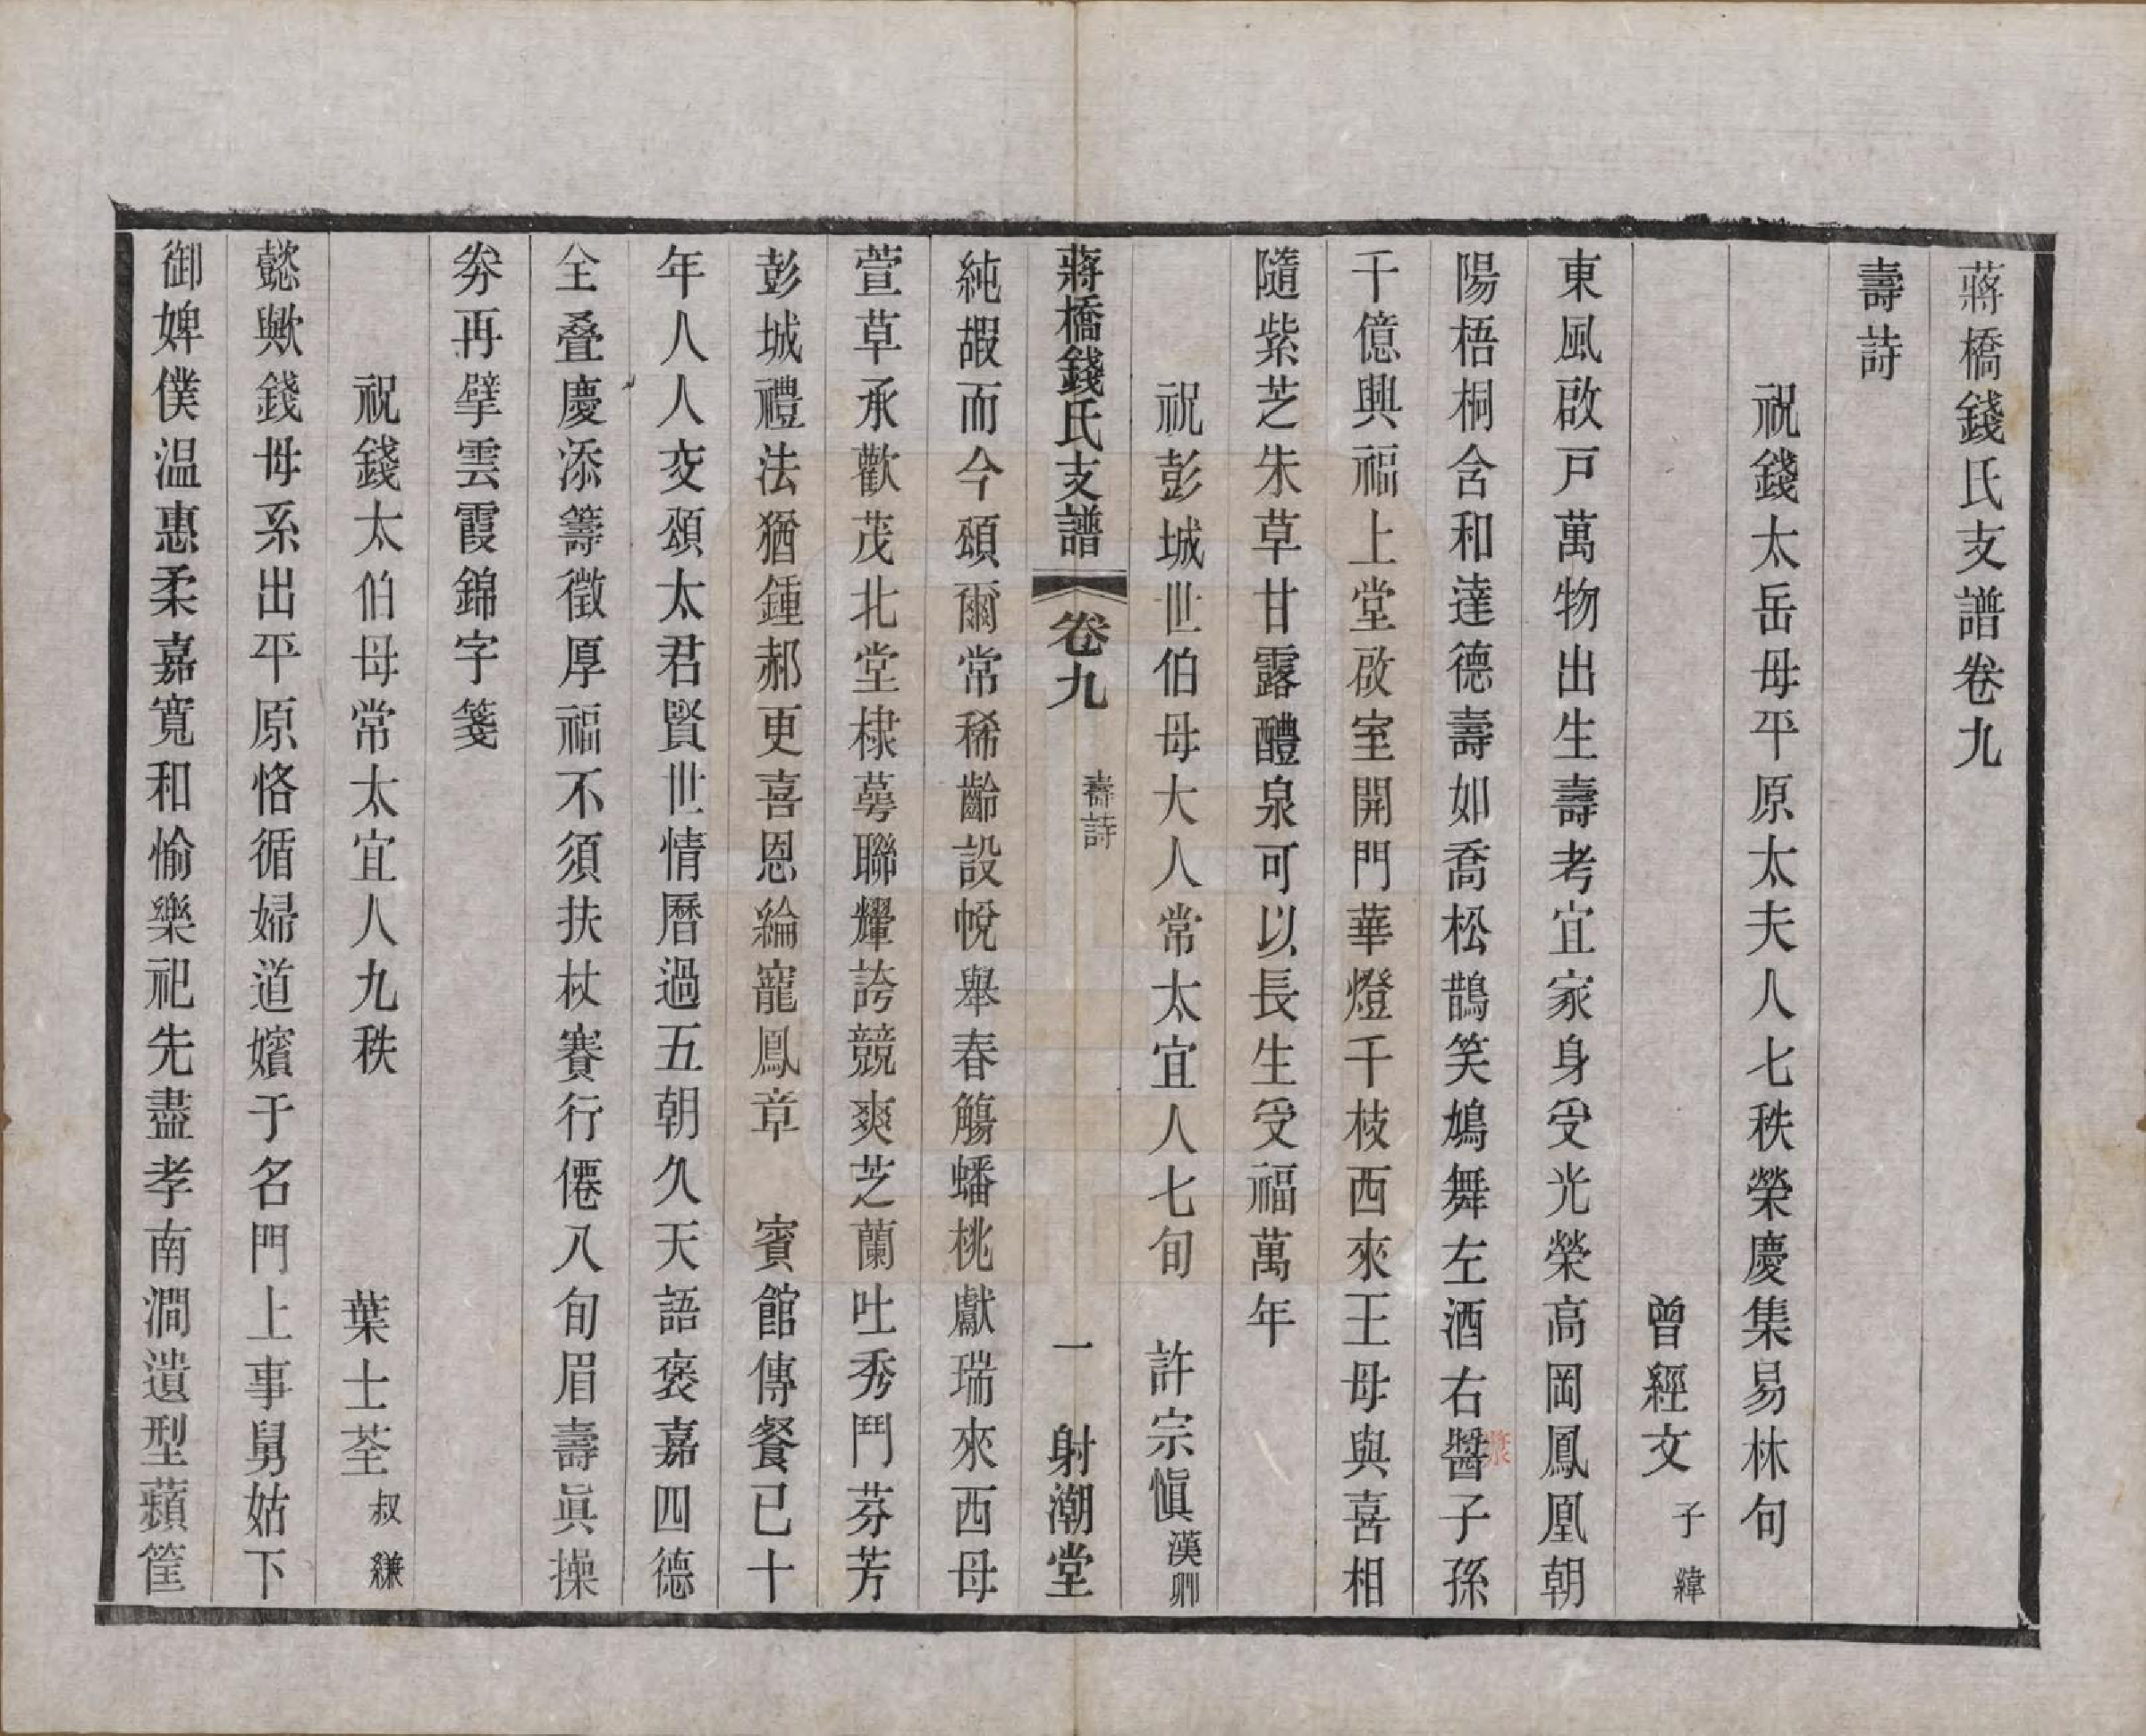 蔣橋錢氏支譜卷九
壽詩
祝錢太岳母平原太夫人七秩榮慶集易林句
曾經文子緯
東風啟戸萬物出生壽考宜家身受光榮高岡鳳凰朝
陽梧桐含和達德壽如喬松鵲笑鳩舞左酒右醬子孫
漿
千億興福上堂啟室開門華燈千枝西來王母與喜相
隨紫芝朱草甘露醴泉可以長生受福萬年
祝彭城世伯母大人常太宜人七旬 許宗愼漢卿
蔣橋錢氏支譜 卷九 壽詩 一 射潮堂
純嘏而今頌爾常稀齡設帨舉春觴蟠桃獻瑞來西母
萱草承歡茂北堂棣萼聯耀誇競爽芝蘭吐秀鬥芬芳
彭城禮法猶鍾郝更喜恩綸寵鳳章 賓館傳餐已十
年人人交頌太君賢世情曆過五朝久天語褒嘉四德
全叠慶添籌徵厚福不須扶杖賽行僊八旬眉壽眞操
劵再擘雲霞錦字箋
祝錢太伯母常太宜人九秩 葉士荃叔縑
懿歟錢母系出平原恪循婦道嬪于名門上事舅姑下
御婢僕温惠柔嘉寬和愉樂祀先盡孝南澗遺型蘋筐